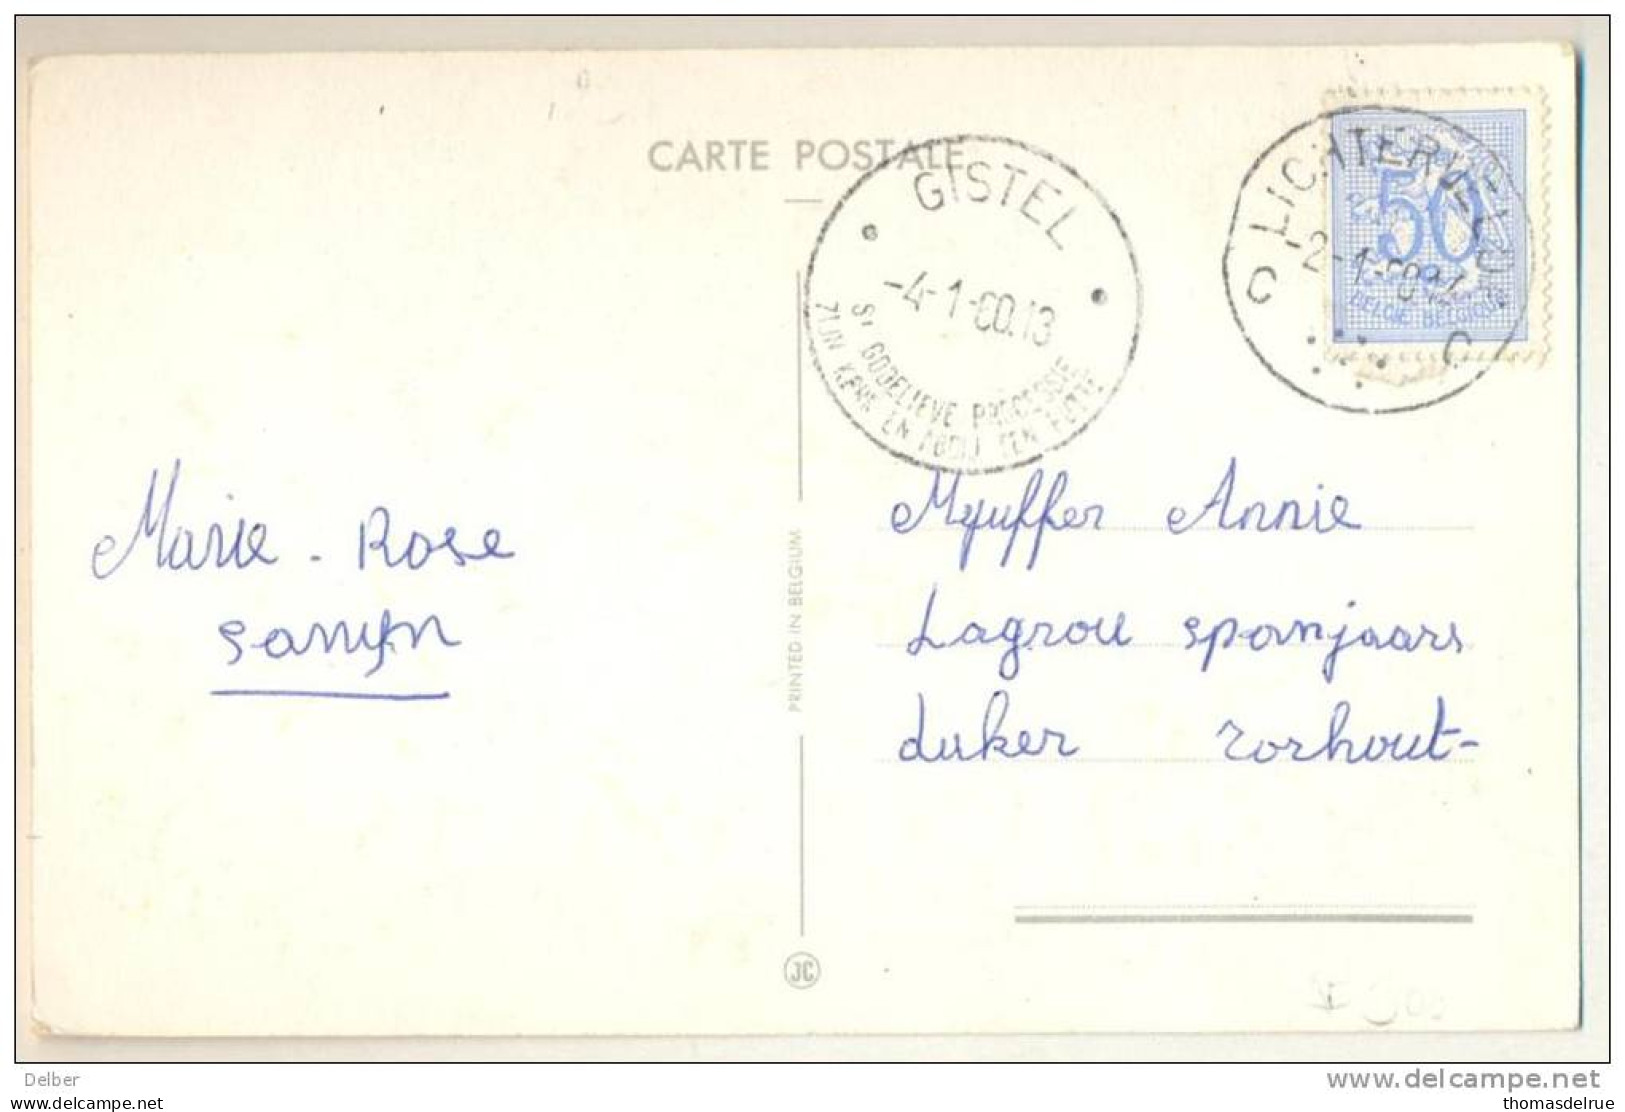 CARTE POSTALE
GISTEL
-4-1-60.13
ST GODELIEVE PROCESSIE
ZIJN KERK EN ABDIJ TEN PUTTE
LICHTERVELDE
2-1-60
C C
50
BELGIE BELGIQUE
Marie-Rose
Samyn
Mejuffer Annie
Lagrou spanjaars
duker Torhout-
PRINTED IN BELGIUM
JC
Delber
delcampe.net
www.delcampe.net
thomasdelrue